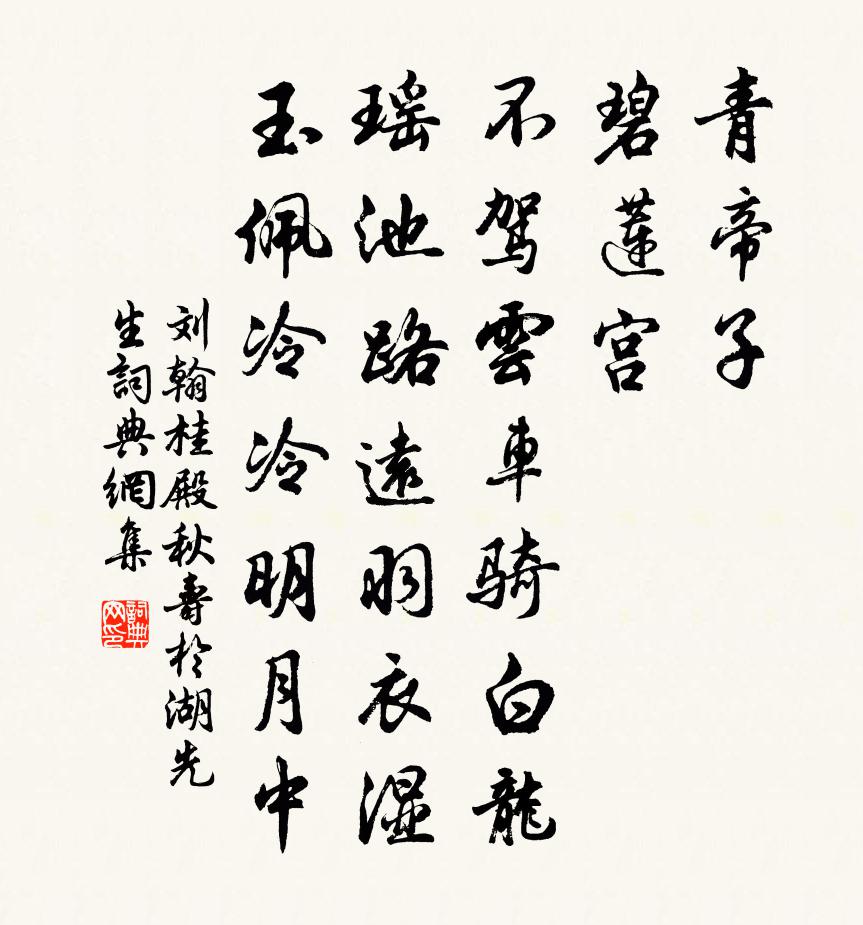 青帝子
碧蓮宫
不駕雲車騎白龍
瑶池路遠羽衣濕
玉佩冷冷明月中
刘翰桂殿秋壽於湖先
生詞典網集
詞典
网印